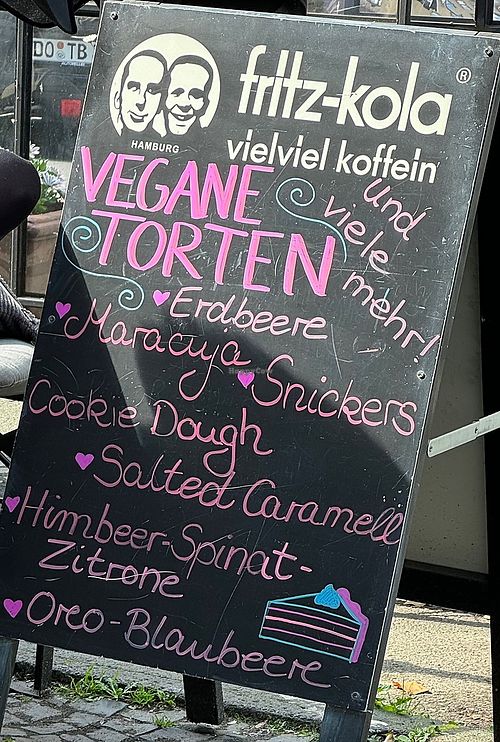 DO TB
fritz-kola®
HAMBURG
vielviel koffein
VEGANE
TORTEN
und
viele
mehr!
Erdbeere
Maracuja
Snickers
Cookie Dough
Salted Caramell
Himbeer-Spinat-
Zitrone
Oreo-Blaubeere